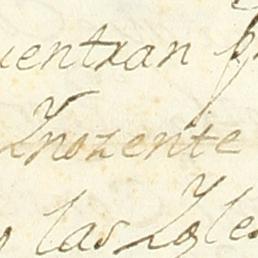 uentran
Ynozente
las Ygle